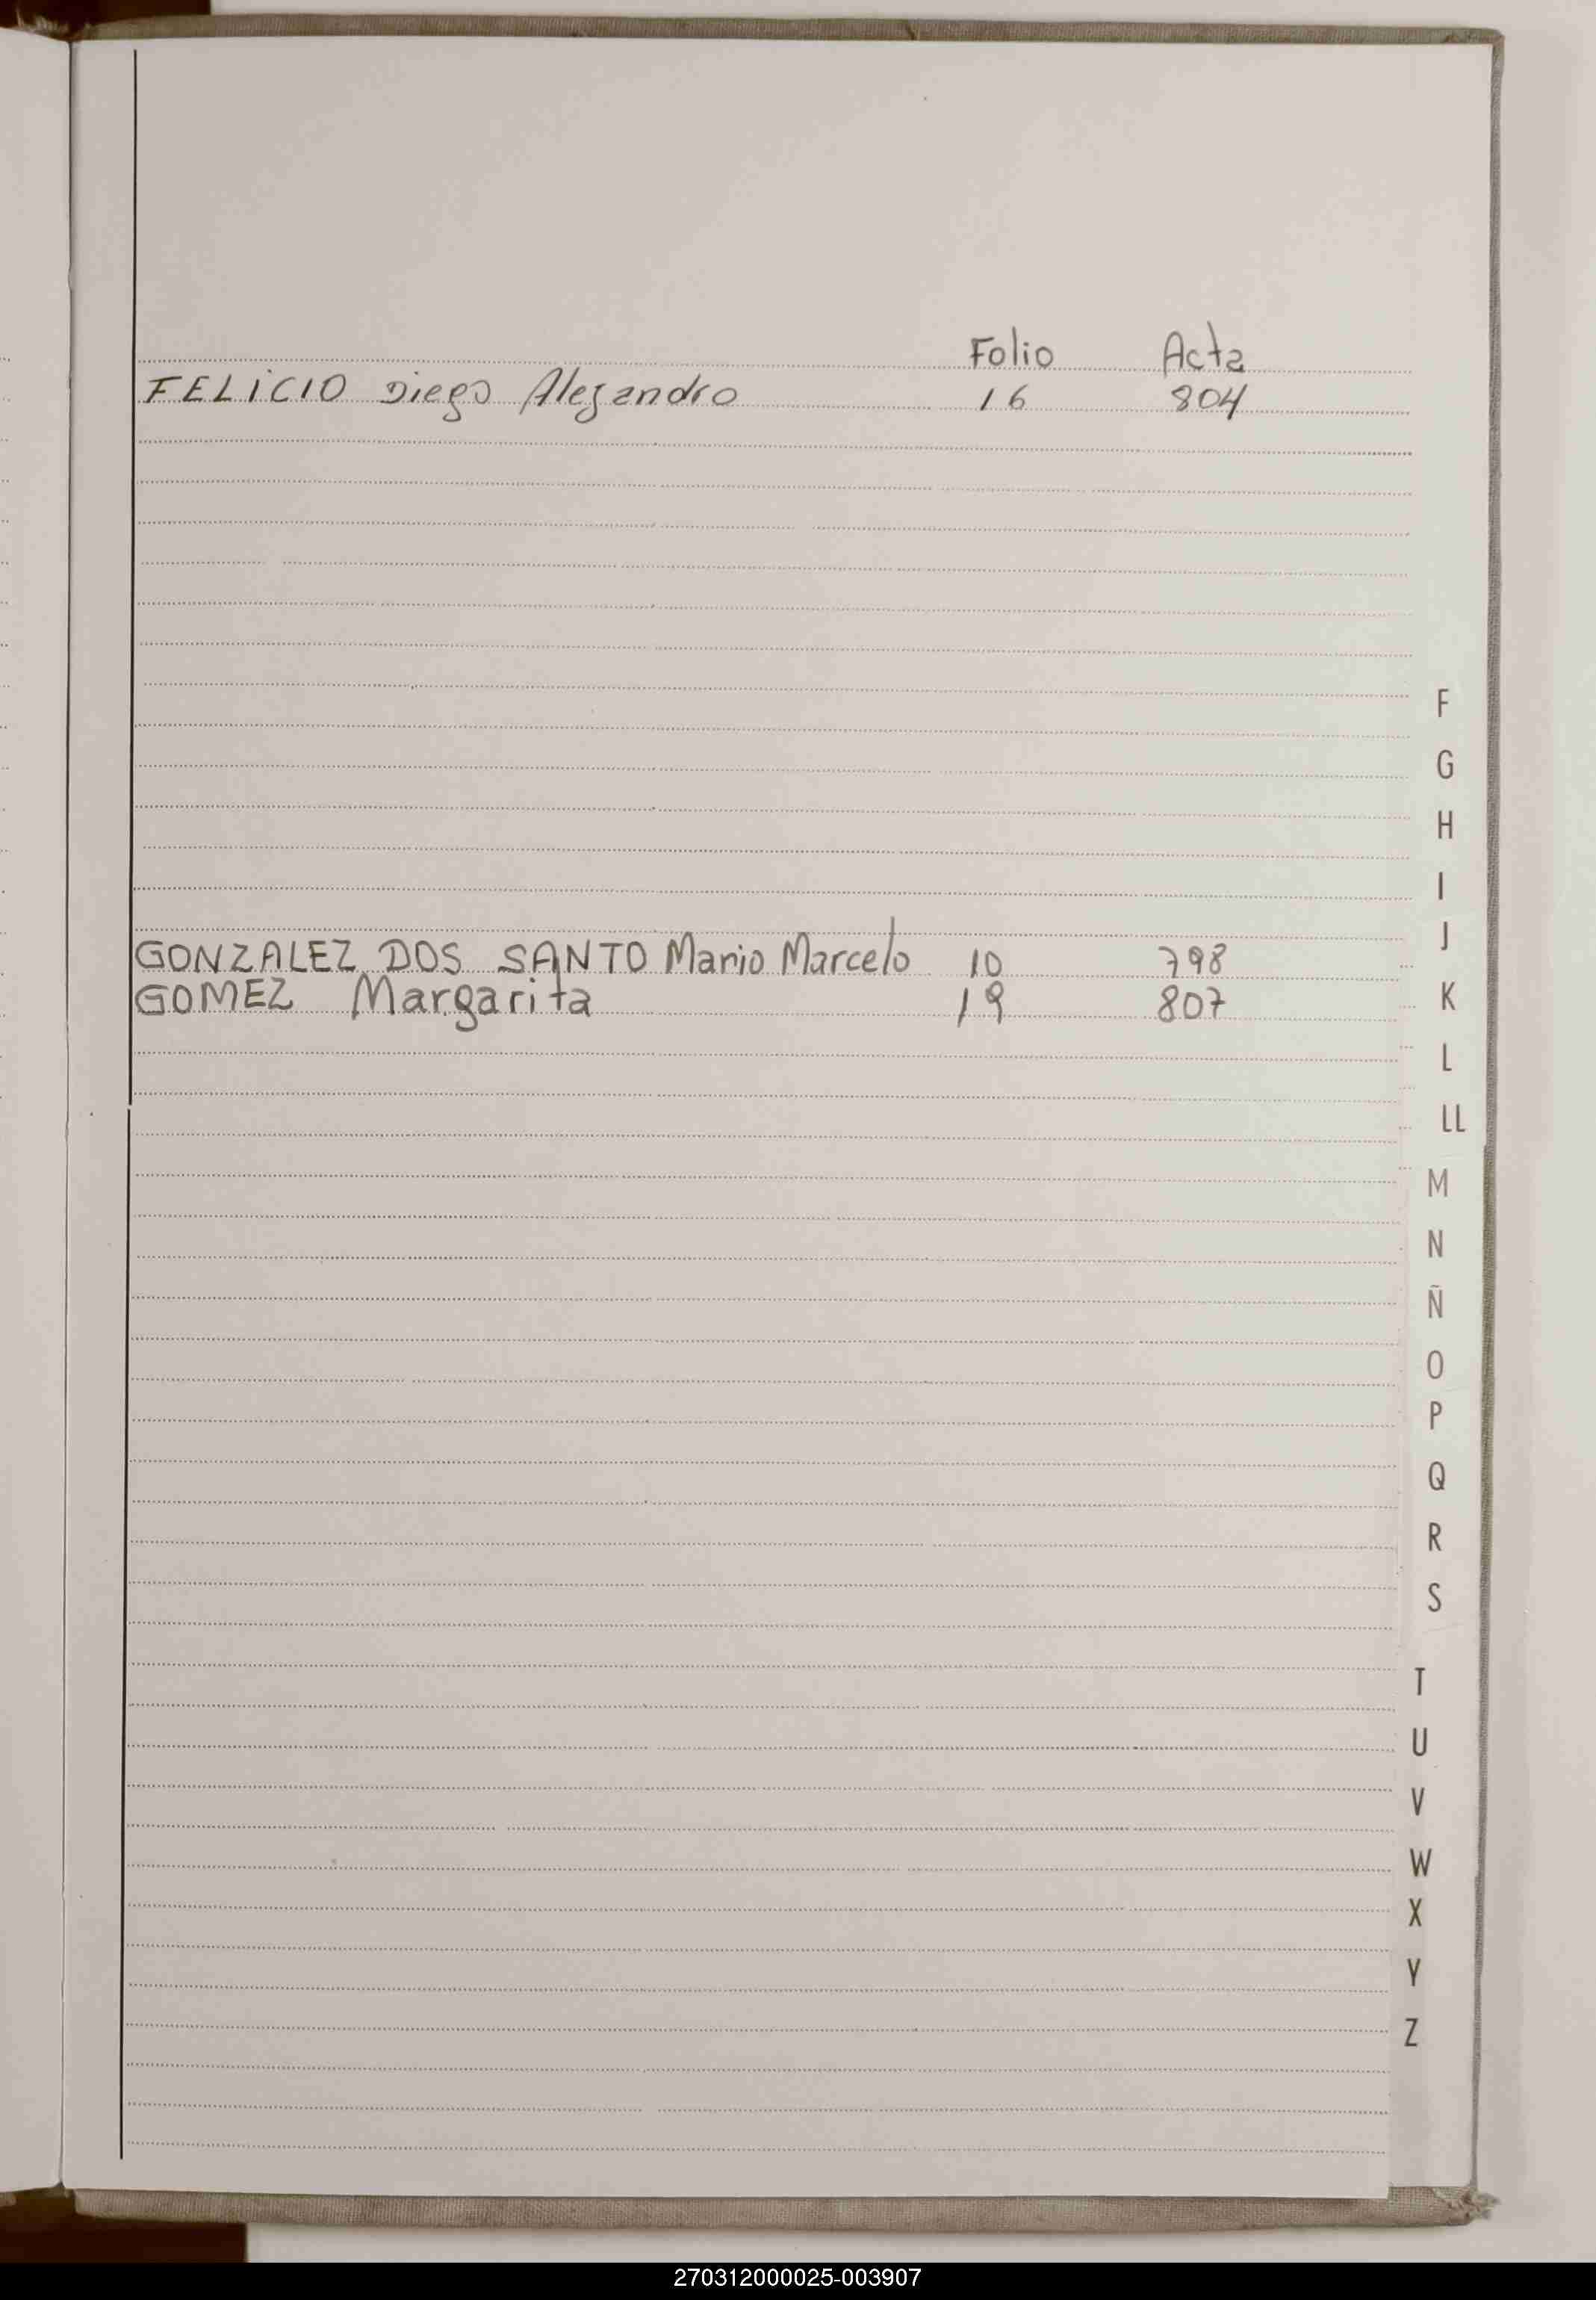 Folio Acta
FELICIO Diego Alejandro 16 804
GONZALEZ DOS SANTO Mario Marcelo 10 798
GOMEZ Margarita 19 807
F
G
H
I
J
K
L
LL
M
N
Ñ
O
P
Q
R
S
T
U
V
W
X
Y
Z
270312000025-003907